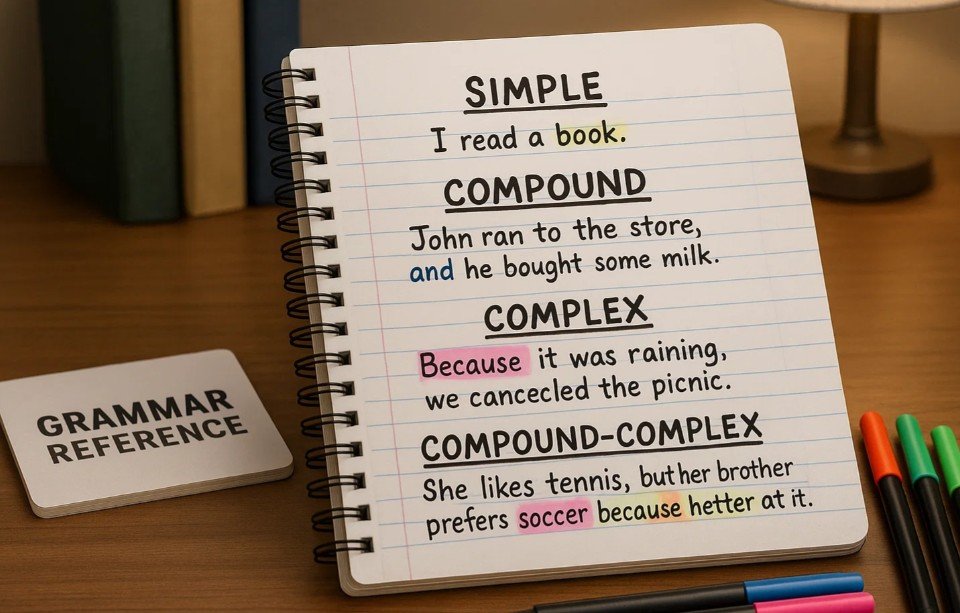 SIMPLE
I read a book.
COMPOUND
John ran to the store,
and he bought some milk.
COMPLEX
Because it was raining,
we cancecled the picnic.
COMPOUND-COMPLEX
She likes tennis, but her brother
prefers soccer because hetter at it.
GRAMMAR
REFERENCE